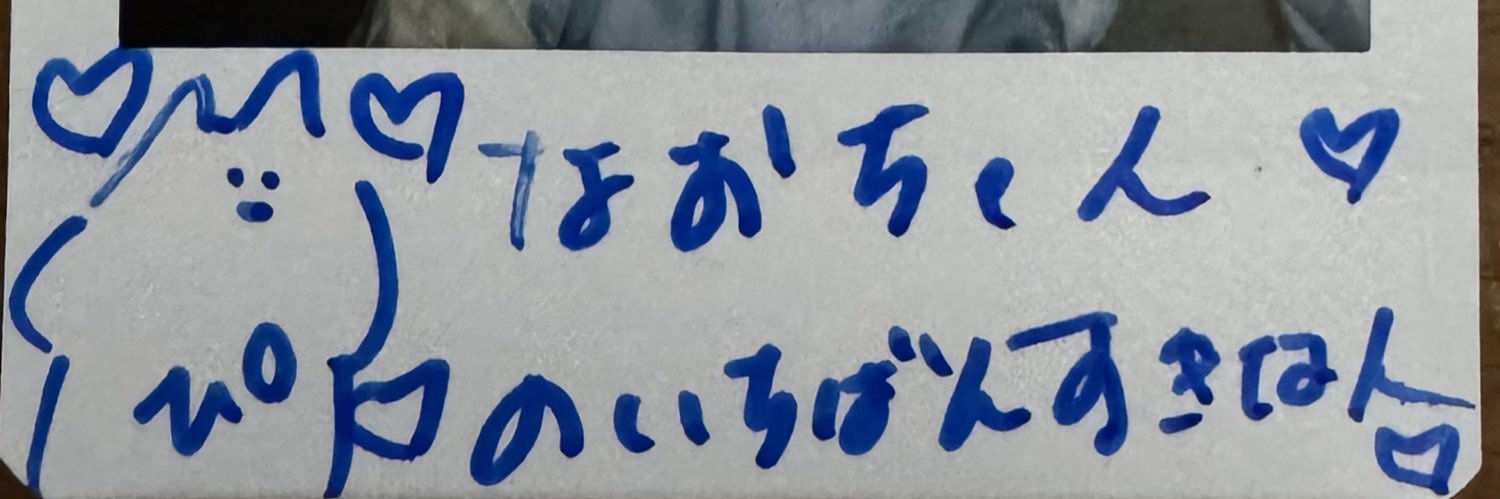 なおちゃん♡
のいちばんすきはん♡